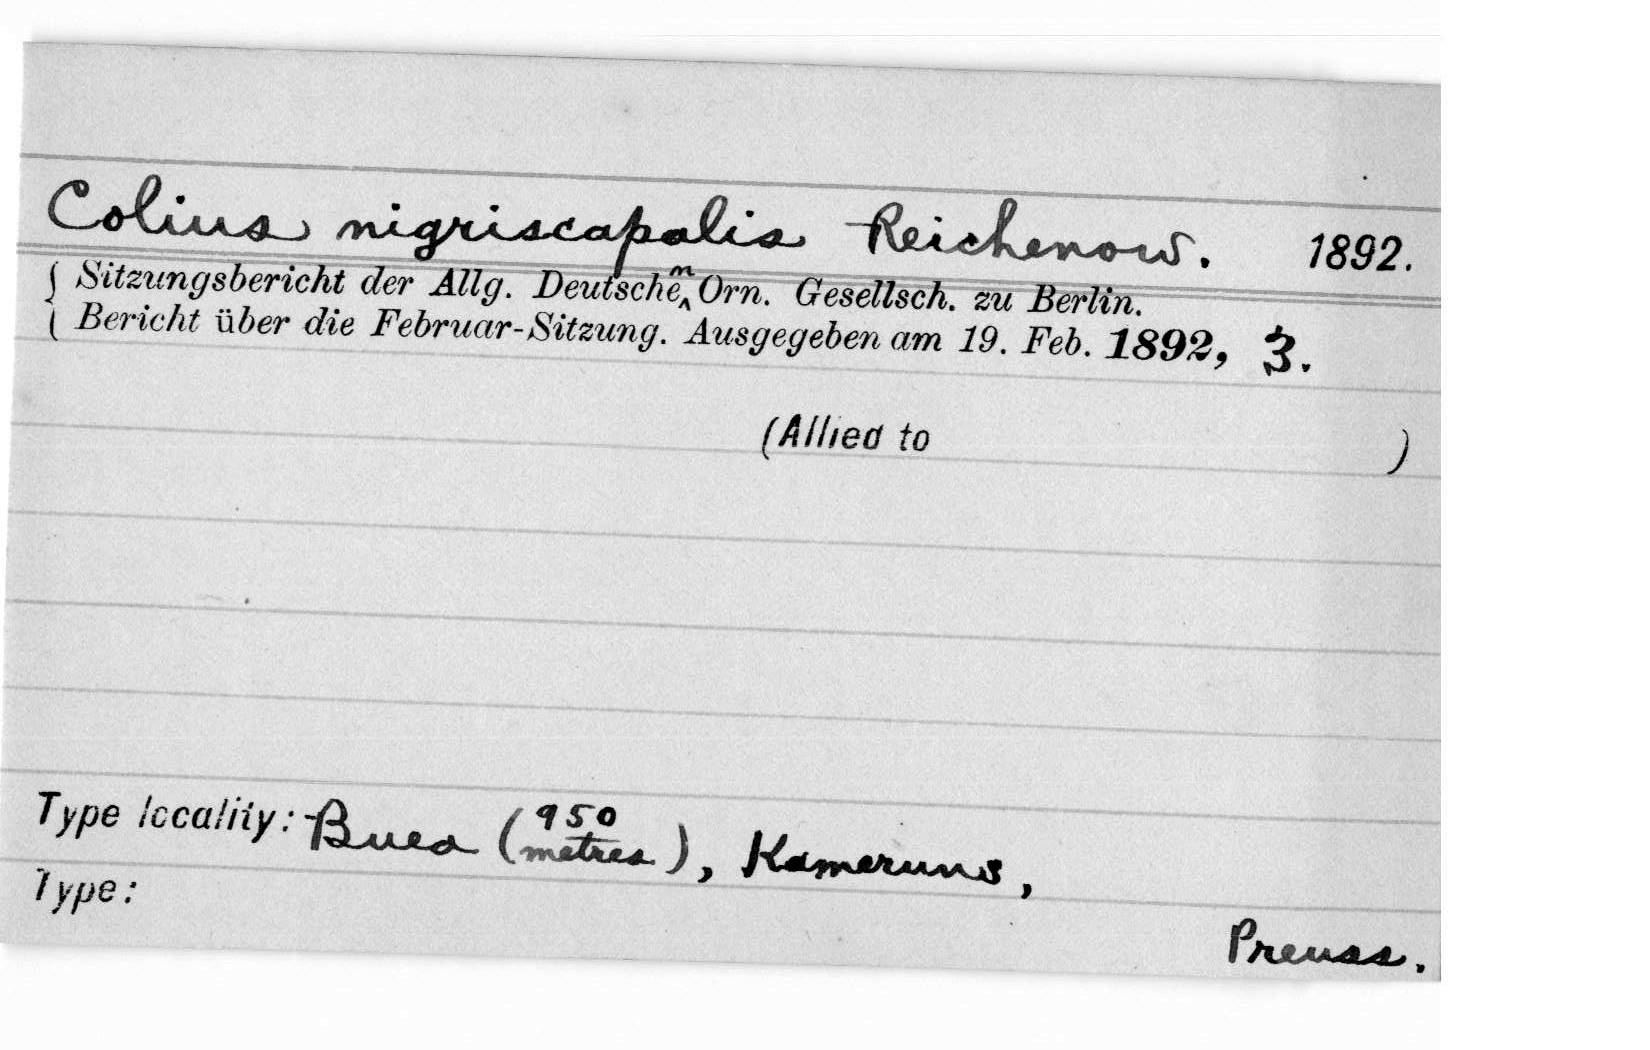 Colius nigriscapalis Reichenow. 1892.
{ Sitzungsbericht der Allg. Deutschen Orn. Gesellsch. zu Berlin.
{ Bericht über die Februar-Sitzung. Ausgegeben am 19. Feb. 1892, 3.
(Allied to )
Type locality: Buea (950 metres), Kameruns,
Type:
Preuss.